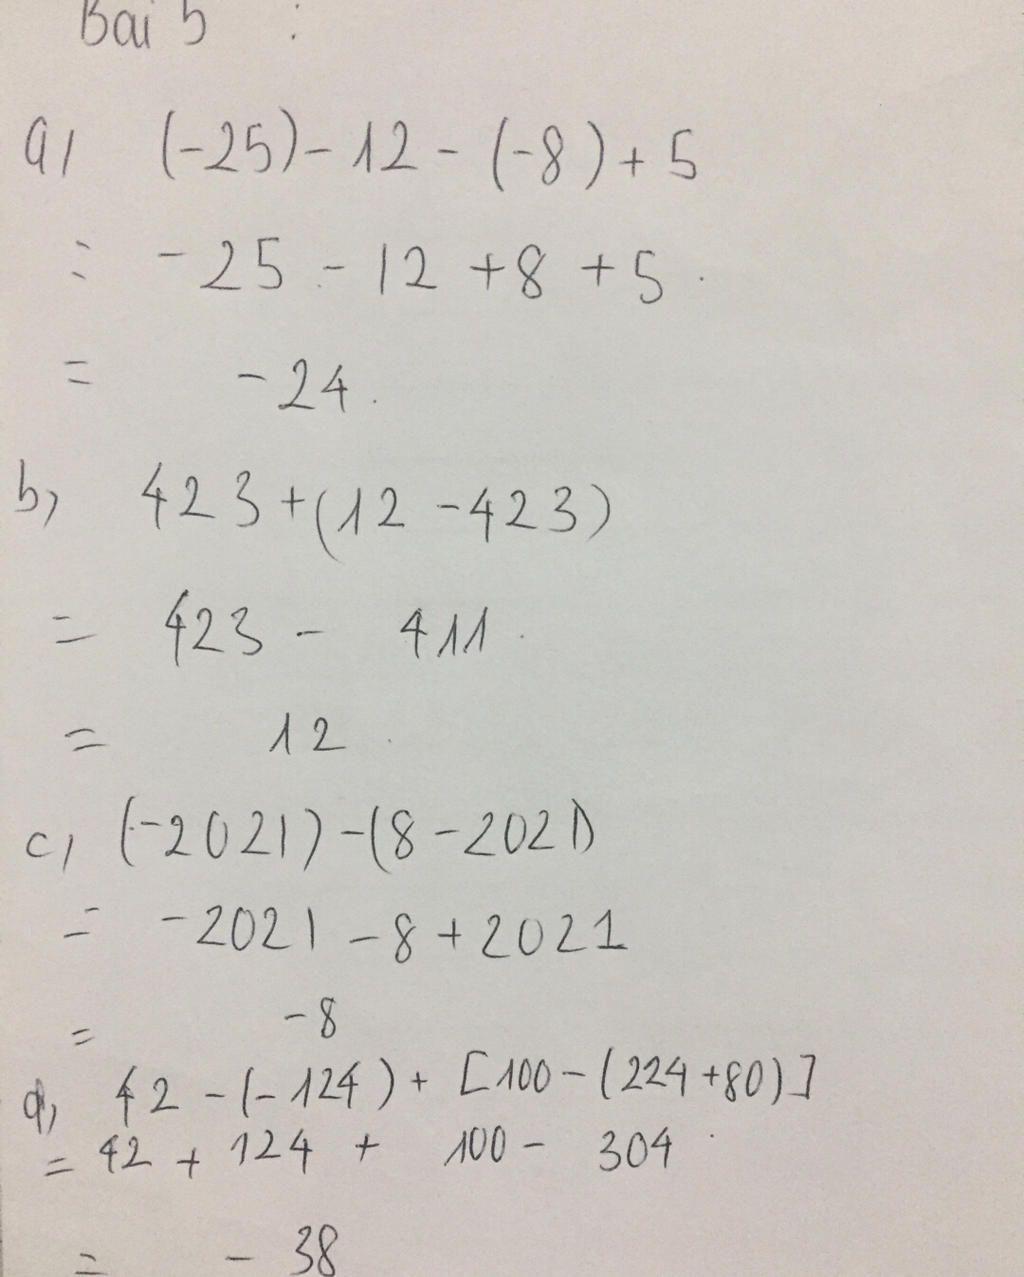 Bài 5 :
a, (-25) - 12 - (-8) + 5
= -25 - 12 + 8 + 5
= -24
b, 423 + (12 - 423)
= 423 - 411
= 12
c, (-2021) - (8 - 2021)
= -2021 - 8 + 2021
= -8
d, 42 - (-124) + [100 - (224 + 80)]
= 42 + 124 + 100 - 304
= -38